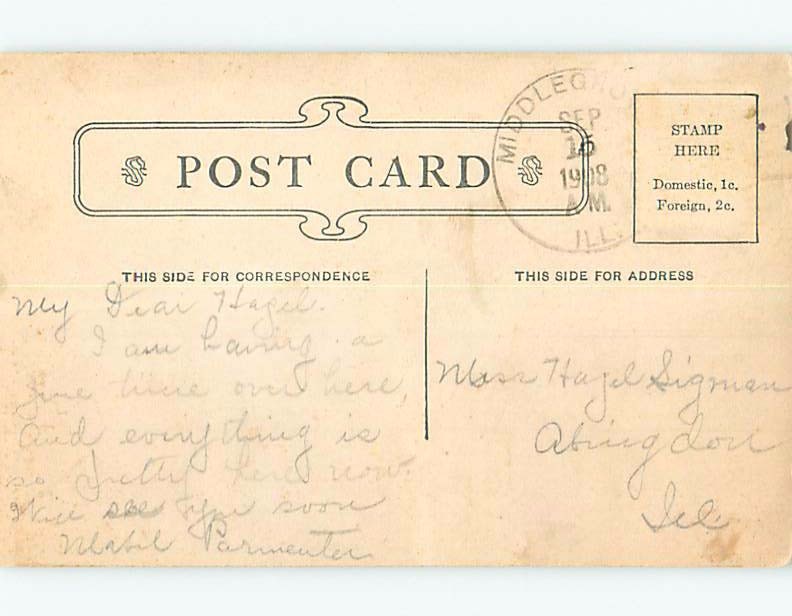 POST CARD
MIDDLEGRO
SEP
15
1908
A.M.
ILL.
STAMP
HERE
Domestic, 1c.
Foreign, 2c.
THIS SIDE FOR CORRESPONDENCE
THIS SIDE FOR ADDRESS
My Dear Hazel.
I am having a
fine time over here,
and everything is
so pretty here now.
Will see you soon
Mabel Parmenter
Miss Hazel Sigman
Abingdon
Ill.